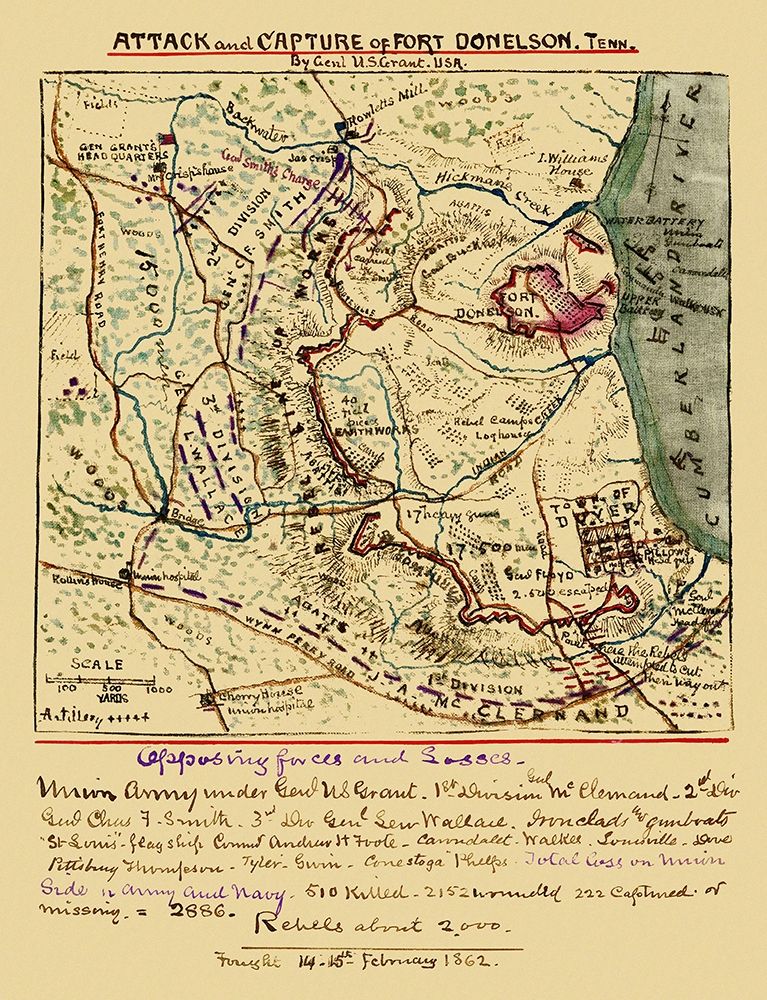 ATTACK and CAPTURE of FORT DONELSON. TENN.
By Genl U.S. Grant. USA.
Fields
Backwater
Rowletts Mill
WOODS
Field
GEN GRANT'S
HEADQUARTERS
Mrs Crisp's house
Jas Crisp
Genl Smith's Charge
I. Williams
House
Hickmans Creek
2nd DIVISION
GEN' C.F. SMITH
WOODS
15,000 men
FORT HENRY ROAD
ABATIS
ABATIS
Genl Buckner
WATER BATTERY
Union
Gunboats
Carondalet
UPPER
Battery
FORT
DONELSON.
CUMBERLAND RIVER
ROAD
LINE OF WORKS
REBEL
Field
40
field
pieces
EARTHWORKS
Rebel Camps
Log houses
INDIAN CREEK
ROAD
3rd DIVISION
GEN L. WALLACE
WOODS
Bridge
17 heavy guns
17.500 men
Genl FLOYD
2.500 escaped
TOWN OF
DOVER
PILLOWS
Head qrs
Rollins house
Union hospital
WOODS
ABATIS
Genl
McClernand
Head Qrs
Point where the Rebels
attempted to cut
their way out
WYNN FERRY ROAD
1st DIVISION
J. A. Mc CLERNAND
SCALE
100 500 1000
YARDS
Artillery +++++
Cherry House
Union hospital
Opposing forces and Losses-
Union Army under Genl US Grant. 1st Division Genl McClernand - 2nd Div
Genl Chas F. Smith. 3rd Div Genl Lew Wallace. Ironclads & gunboats
"St Louis"- flag ship Comd Andrew H Foote - Carondalet - Walke. Louisville - Dove
Pittsburg Thompson - Tyler - Gwin - Conestoga Phelps. Total loss on Union
Side in Army and Navy. 510 Killed - 2152 wounded 222 Captured or
missing. = 2886.
Rebels about 2,000.
Fought 14-15th February 1862.